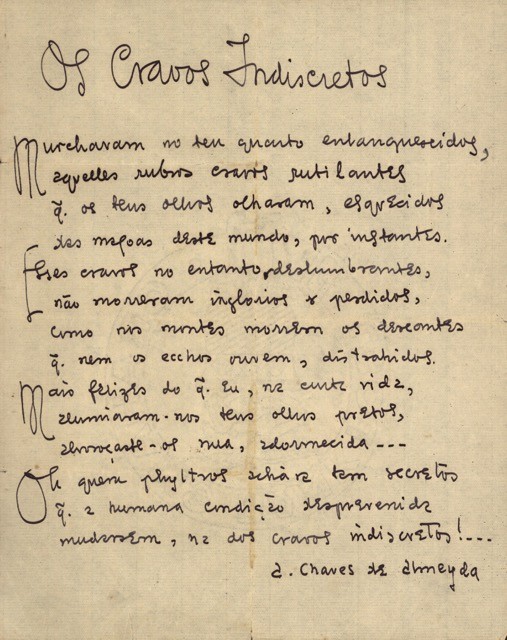 Os Cravos Indiscretos
Murcharam no teu quarto enlanguescidos,
aquelles rubros cravos rutilantes
q̃. os teus olhos olharam, esquecidos
das magoas deste mundo, por instantes.
Esses cravos no entanto, deslumbrantes,
não morreram inglorios e perdidos,
como nos montes morrem os descantes
q̃. nem os ecchos ouvem, distrahidos.
Mais felizes do q̃. eu, na curta vida,
alumiaram-nos teus olhos pretos,
abraçaste-os nua, adormecida ---
Oh quem phyltros achára tam secretos
q̃. a humana condição desprevenida
mudassem, na dos cravos indiscretos!...
A. Chaves de Almeyda